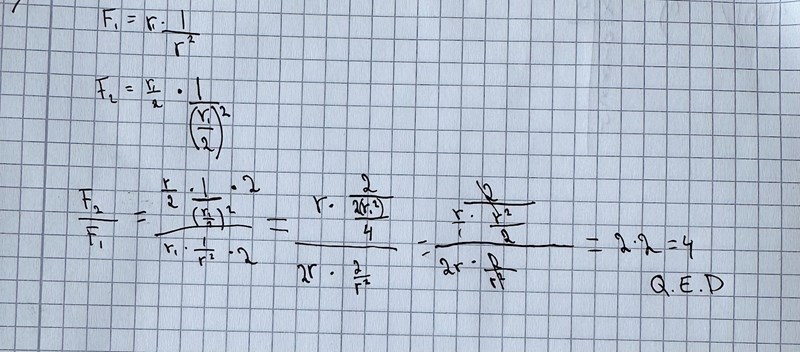 F₁ = r₁ · 1/r²
F₂ = r₁/2 · 1/(r₁/2)²
F₂/F₁ = (r/2 · 1/(r₁/2)² · 2)/(r₁ · 1/r² · 2) = (r · 2/(2(r₁²)/4))/(2r · 2/r²) = (2/(r/1 · r²/2))/(2r · 2/r²) = 2·2 = 4
Q.E.D